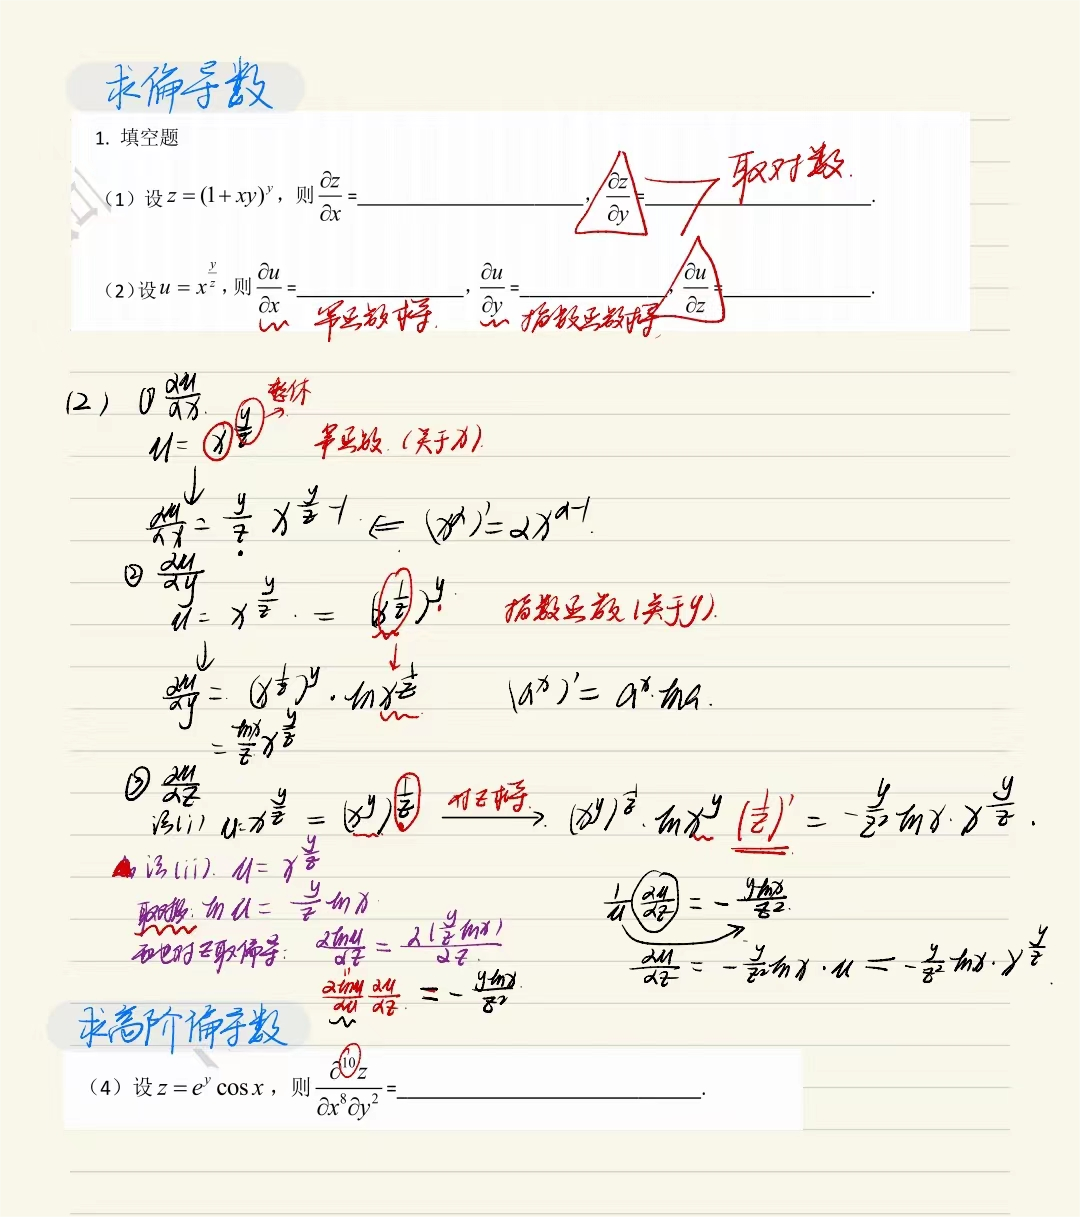 求偏导数
1. 填空题
（1）设 z = (1+xy)^y，则 ∂z/∂x = ____________, ∂z/∂y = ____________. 取对数.
（2）设 u = x^(y/z)，则 ∂u/∂x = ____________, ∂u/∂y = ____________, ∂u/∂z = ____________.
幂函数求导. 指数函数求导
(2) ① ∂u/∂x. 整体
u = x^(y/z) 幂函数.（关于x）.
↓
∂u/∂x = y/z x^(y/z -1) ⇐ (x^α)' = αx^(α-1).
② ∂u/∂y
u = x^(y/z). = (x^(1/z))^y. 指数函数（关于y）.
↓ ↓
∂u/∂y = (x^(1/z))^y · ln x^(1/z) (a^x)' = a^x · lna.
= lnx/z x^(y/z)
③ ∂u/∂z
法(i) u = x^(y/z) = (x^y)^(1/z) 对z求导. → (x^y)^(1/z) · ln x^y (1/z)' = -y/z² lnx · x^(y/z).
法(ii). u = x^(y/z)
取对数: ln u = y/z lnx
1/u ∂u/∂z = - ylnx/z².
两边对z取偏导: ∂lnu/∂z = ∂(y/z lnx)/∂z.
∂u/∂z = -y/z² lnx · u = -y/z² lnx · x^(y/z).
∂lnu/∂u ∂u/∂z = - ylnx/z².
求高阶偏导数
（4）设 z = e^y cos x，则 ∂^10 z/∂x^8∂y^2 = ____________.